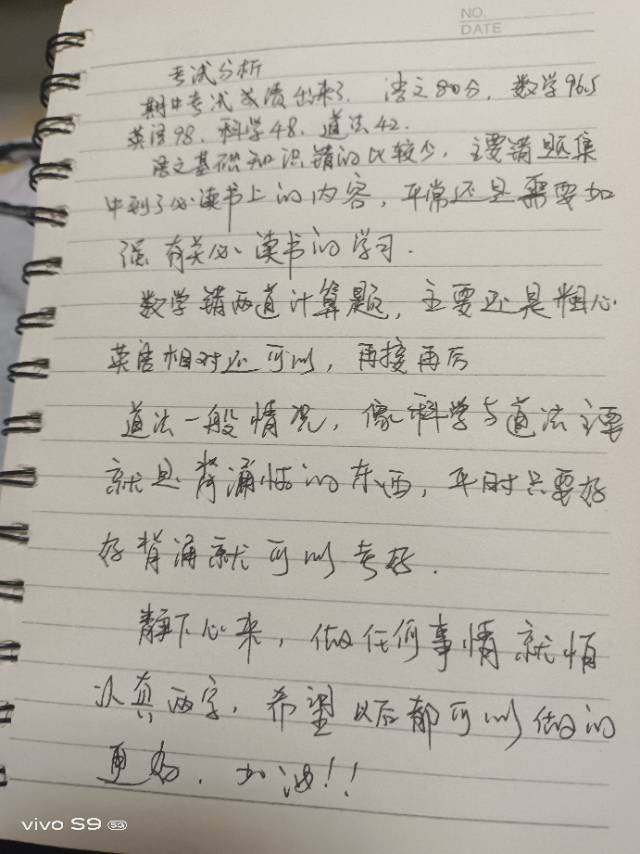 NO.
DATE
考试分析
期中考试成绩出来了,语文80分,数学96.5
英语98,科学48,道法42.
语文基础知识错的比较少,主要错题集
中到了必读书上的内容,平常还是需要加
强有关必读书的学习.
数学错两道计算题,主要还是粗心
英语相对还可以,再接再后
道法一般情况,像科学与道法主要
就是背涌性的东西,平时只要好
好背涌就可以考好.
静下心来,做任何事情就怕
认真两字,希望以后都可以做的
更好,加油!!
vivo S9